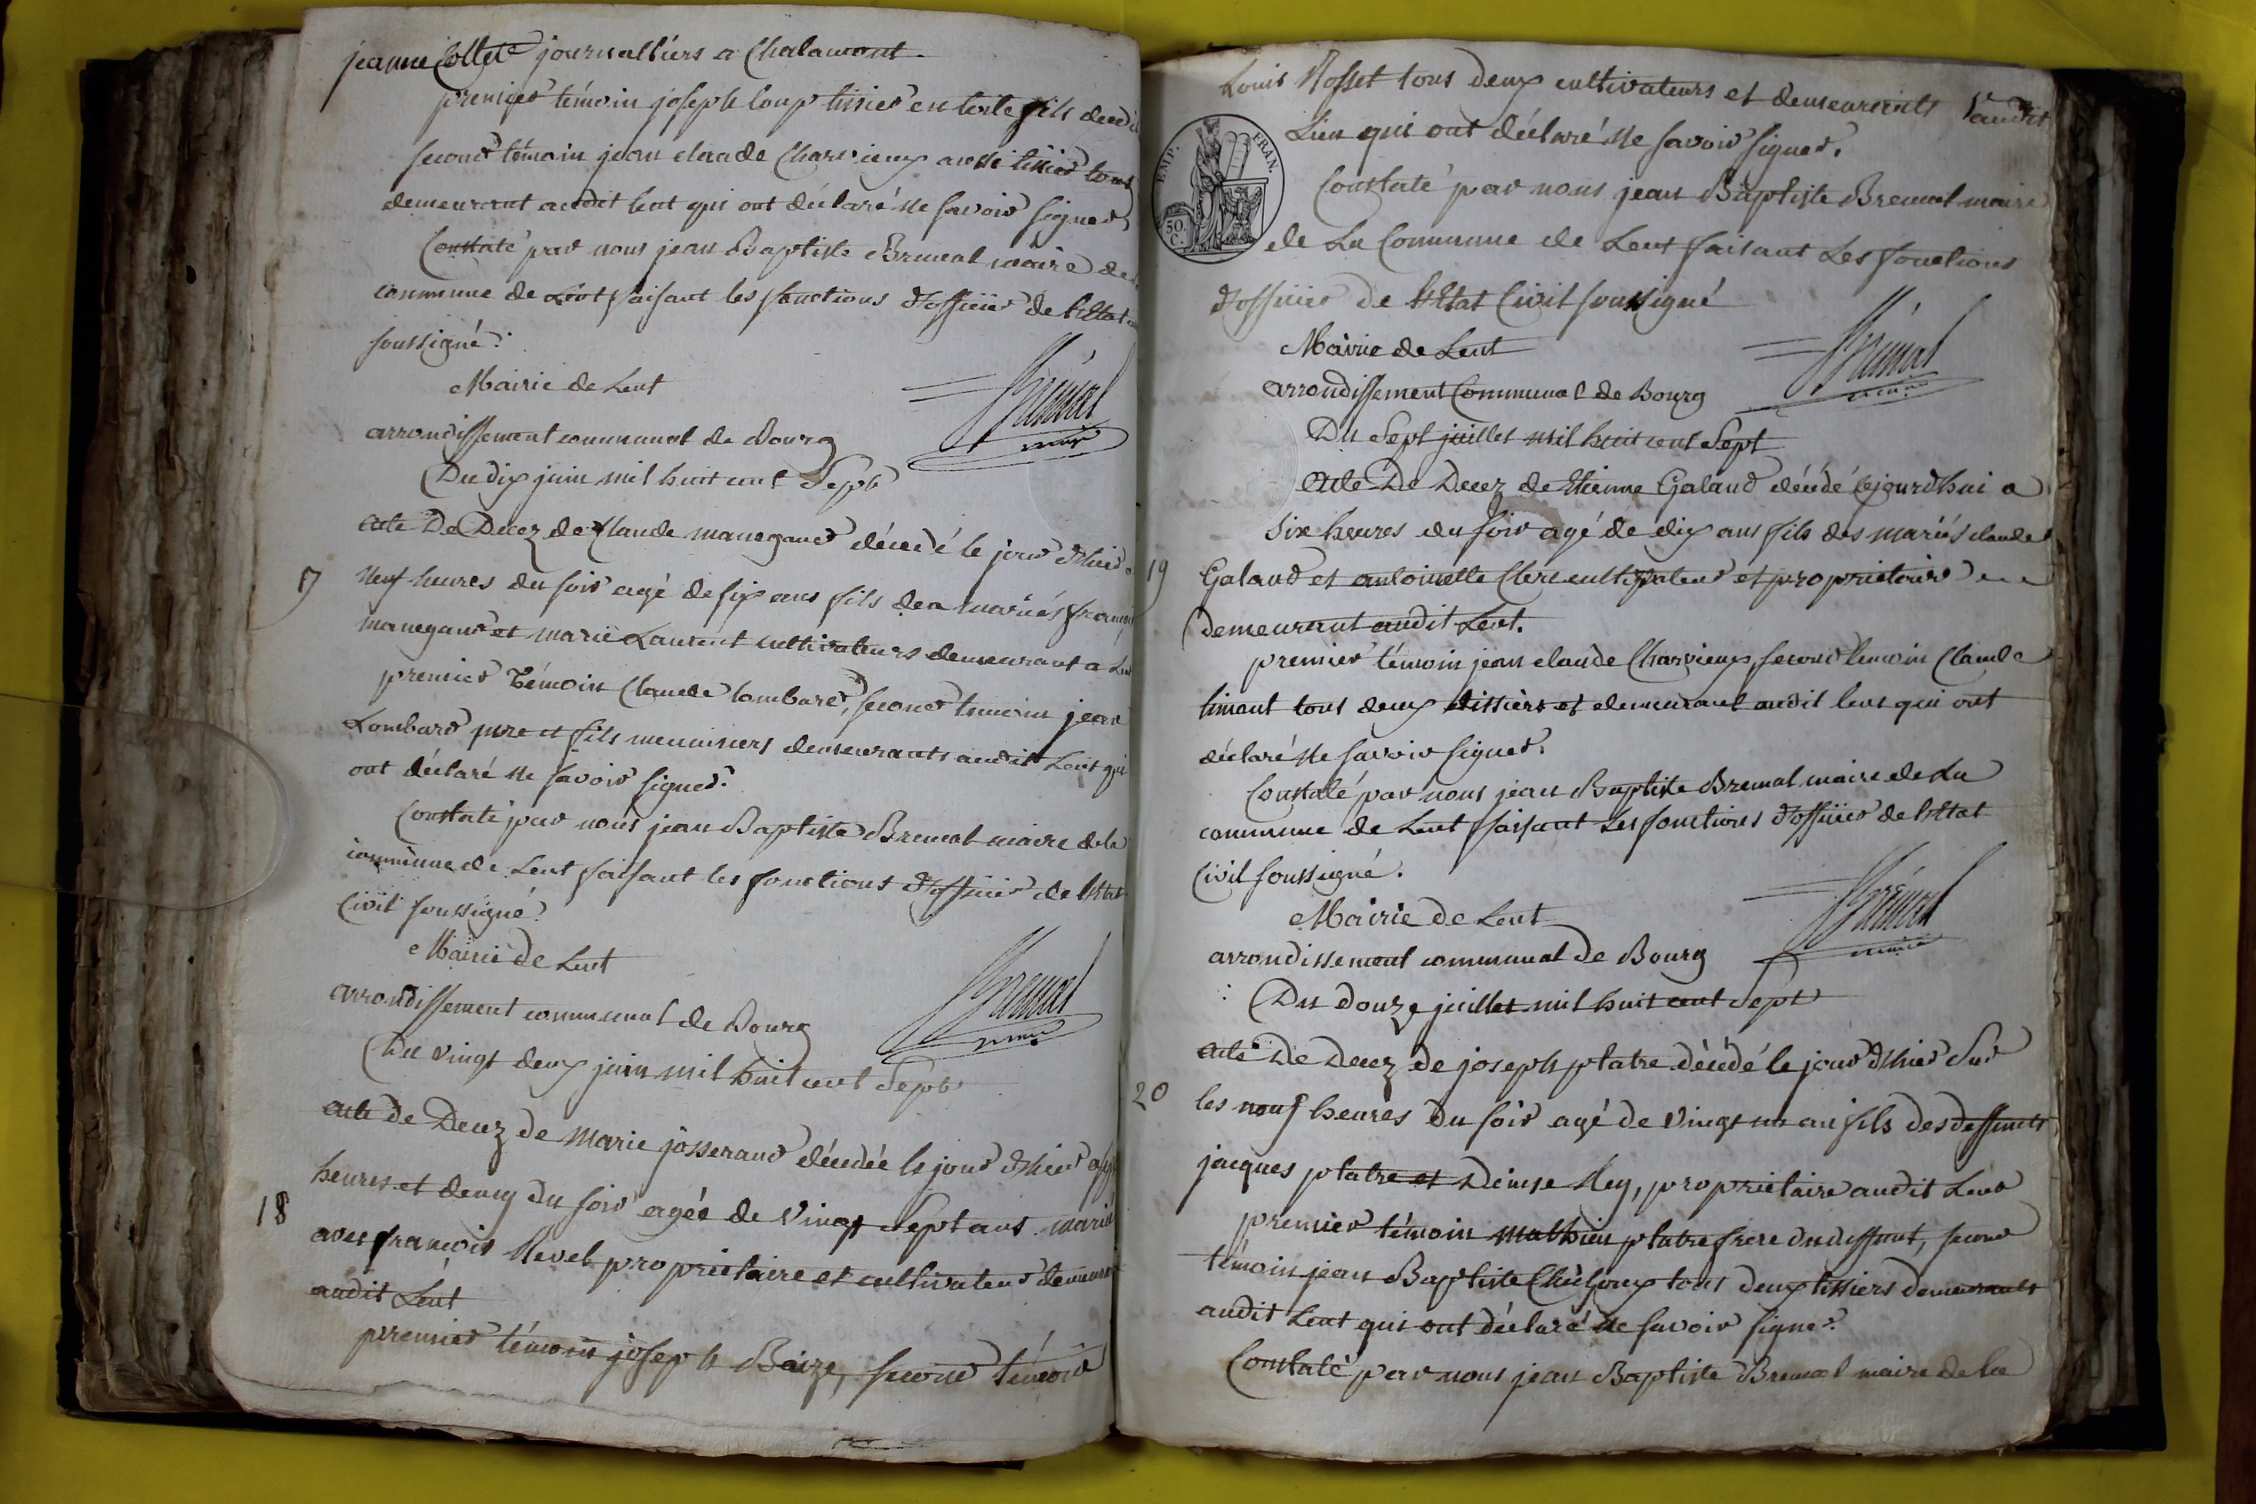 jeanne Collet journalliers a Chalamont.
premier témoin joseph loup tissier en toile fils
second témoin jean claude Charvieux aussi tissier tous
demeurant audit lent qui ont déclaré ne savoir signer
Constaté par nous jean Baptiste Bremal maire de
commune de Lent faisant les fonctions d'officier de l'Etat
soussigné.
Bremal
maire
Mairie de Lent
arrondissement communal de Bourg
Du dix juin mil huit cent Sept
acte De Decez de Claude manegand décédé le jour d'hier a
17
neuf heures du soir agé de six ans fils des mariés
manegand et marie Laurent cultivateurs demeurant a Lent
premier Témoin Claude lombard, second temoin jean
Lombard pere et fils meuniers demeurants audit Lent qui
ont déclaré ne savoir signer.
Constaté par nous jean Baptiste Bremal maire de la
commune de Lent faisant les fonctions d'officier de l'Etat
Civil soussigné.
Bremal
maire
Mairie de Lent
arrondissement communal de Bourg
Du vingt deux juin mil huit cent Sept
acte de Decez de Marie josserand décédée le jour d'hier a
18
heures et demy du soir agée de vingt Sept ans
avec françois Revel propriétaire et cultivateur
audit Lent
premier témoin joseph Baize, second témoin
Louis Rosset tous deux cultivateurs et demeurants audit
Lieu qui ont déclaré ne savoir signer.
EMP. FRAN.
50. C.
Constaté par nous jean Baptiste Bremal maire
de La Commune de Lent faisant Les fonctions
d'officier de l'Etat Civil soussigné
Bremal
maire
Mairie de Lent
arrondissement Communal de Bourg
Du Sept juillet mil huit cent Sept
Acte De Decez de Etienne Galand décédé cejourd'hui a
six heures du soir agé de dix ans fils des mariés claude
19
Galand et antoinette Clerc cultivateur et proprietaire
demeurant audit Lent.
premier témoin jean claude Charvieux second temoin Claude
timant tous deux tissiers et demeurant audit lent qui ont
déclaré ne savoir signer.
Constaté par nous jean Baptiste Bremal maire de La
commune de Lent faisant Les fonctions d'officier de l'Etat
Civil soussigné.
Bremal
maire
Mairie de Lent
arrondissement communal de Bourg
Du Douze juillet mil huit cent Sept
Acte De Decez de joseph platre décédé le jour d'hier sur
20
les neuf heures du soir agé de vingt un an fils des deffunts
jacques platre et Denise Rey, proprietaire audit Lent
premier témoin mathieu platre frere du deffunt, second
témoin jean Baptiste tous deux tissiers demeurants
audit Lent qui ont déclaré ne savoir signer.
Constaté par nous jean Baptiste Bremal maire de la